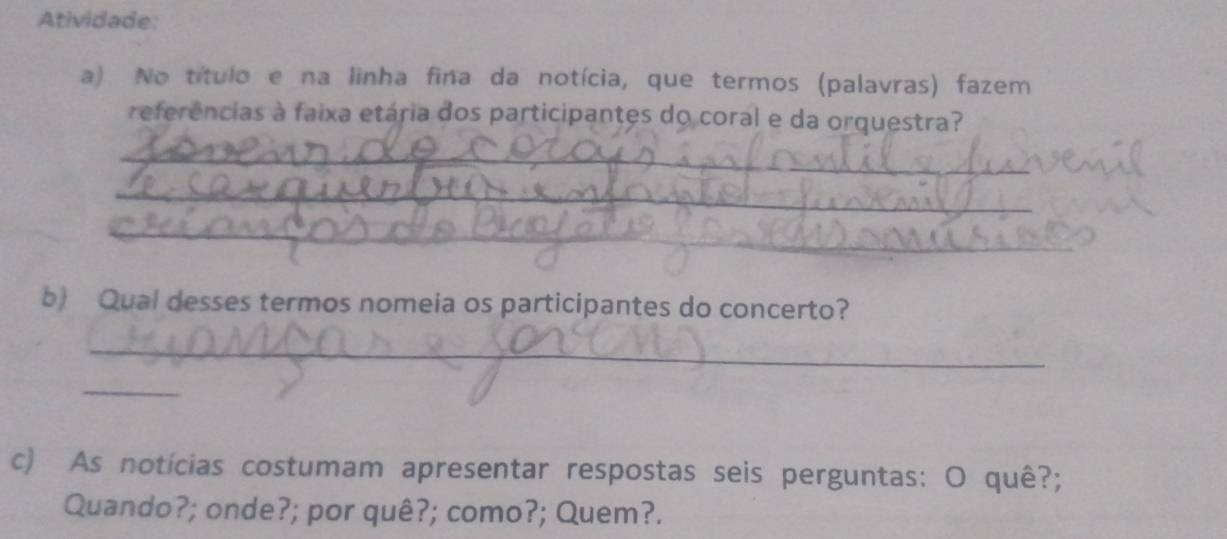 Atividade:
a) No título e na linha fina da notícia, que termos (palavras) fazem
referências à faixa etária dos participantes do coral e da orquestra?
Jovens do corais infantil e juvenil
e infanto-juvenil
crianças do Projeto
b) Qual desses termos nomeia os participantes do concerto?
crianças e jovens
c) As notícias costumam apresentar respostas seis perguntas: O quê?;
Quando?; onde?; por quê?; como?; Quem?.